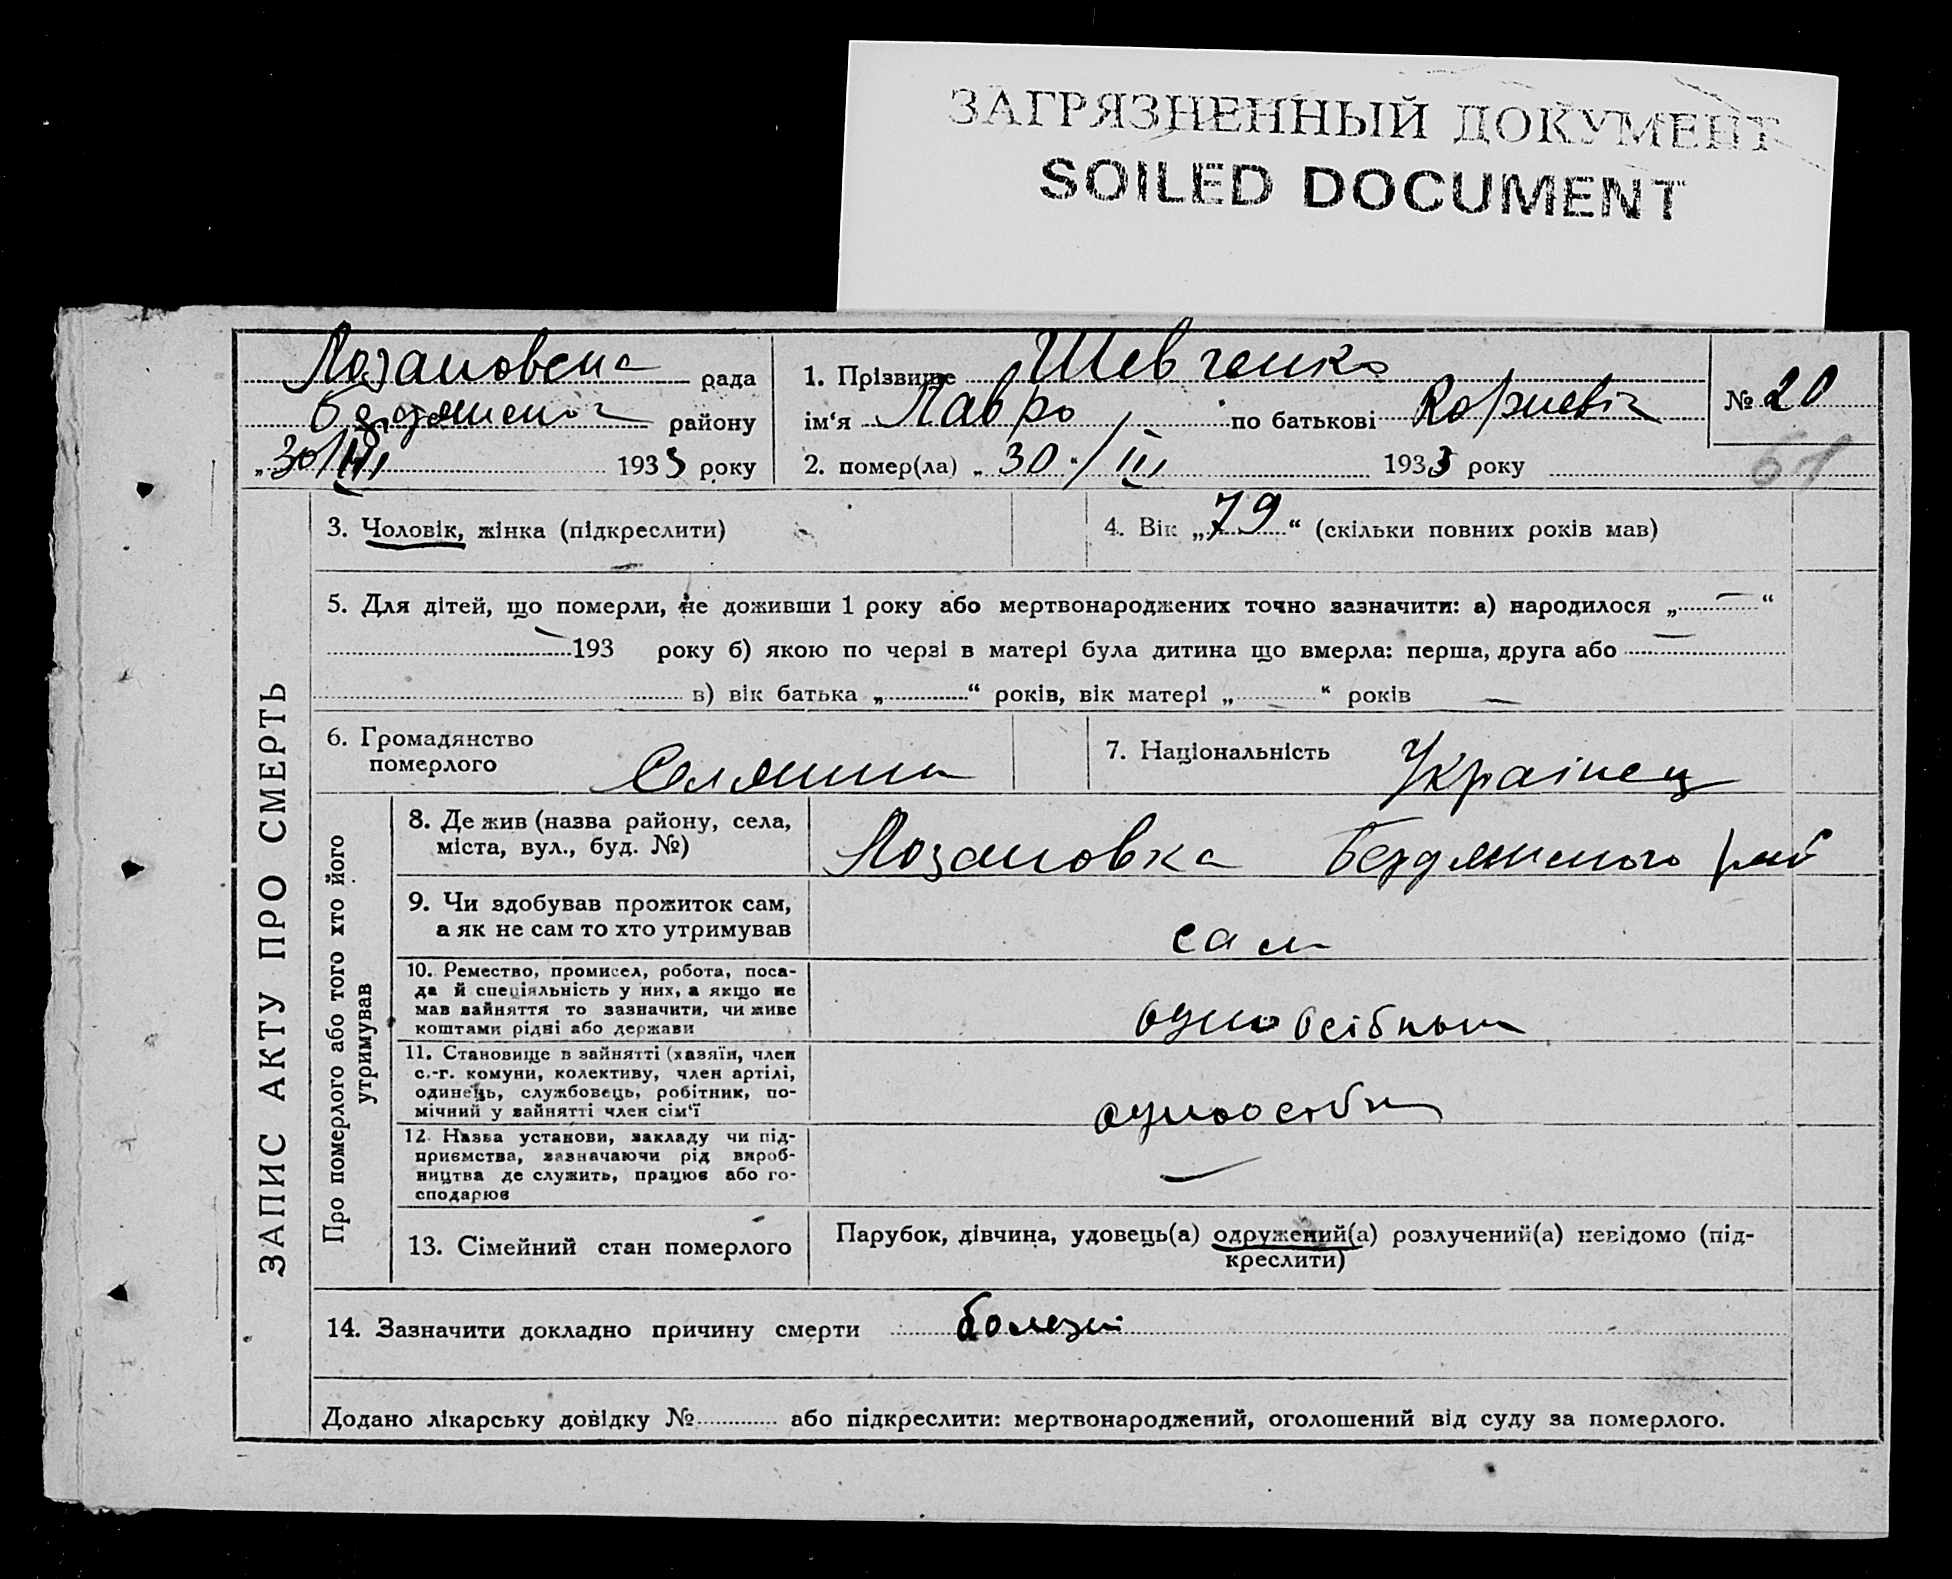 ЗАГРЯЗНЕННЫЙ ДОКУМЕНТ
SOILED DOCUMENT
Лозановська рада
району
„30/III 1933 року
1. Прізвище Шевченко
ім‘я Лавро по батькові
№ 20
61
2. помер(ла) „30“/III 1933 року
ЗАПИС АКТУ ПРО СМЕРТЬ
3. Чоловік, жінка (підкреслити)
4. Вік „79“ (скільки повних років мав)
5. Для дітей, що померли, не доживши 1 року або мертвонароджених точно зазначити: а) народилося „—“
— 193 року б) якою по черзі в матері була дитина що вмерла: перша, друга або —
в) вік батька „ “ років, вік матері „ “ років —
6. Громадянство
померлого
Селянин
7. Національність Украінец
Про померлого або того хто його
утримував
8. Де жив (назва району, села,
міста, вул., буд. №)
Лозановка Бердянського рай
9. Чи здобував прожиток сам,
а як не сам то хто утримував
сам
10. Ремество, промисел, робота, поса-
да й спеціяльність у них, а якщо не
мав зайняття то зазначити, чи живе
коштами рідні або держави
одноосібнык
11. Становище в зайнятті (хазяїн, член
с.-г. комуни, колективу, член артілі,
одинець, службовець, робітник, по-
мічний у зайнятті член сім‘ї
одноосібн
12. Назва установи, закладу чи під-
приємства, зазначаючи рід вироб-
ництва де служить, працює або го-
сподарює
—
13. Сімейний стан померлого
Парубок, дівчина, удовець(а) одружений(а) розлучений(а) невідомо (під-
креслити)
14. Зазначити докладно причину смерти болезні
Додано лікарську довідку № або підкреслити: мертвонароджений, оголошений від суду за померлого.